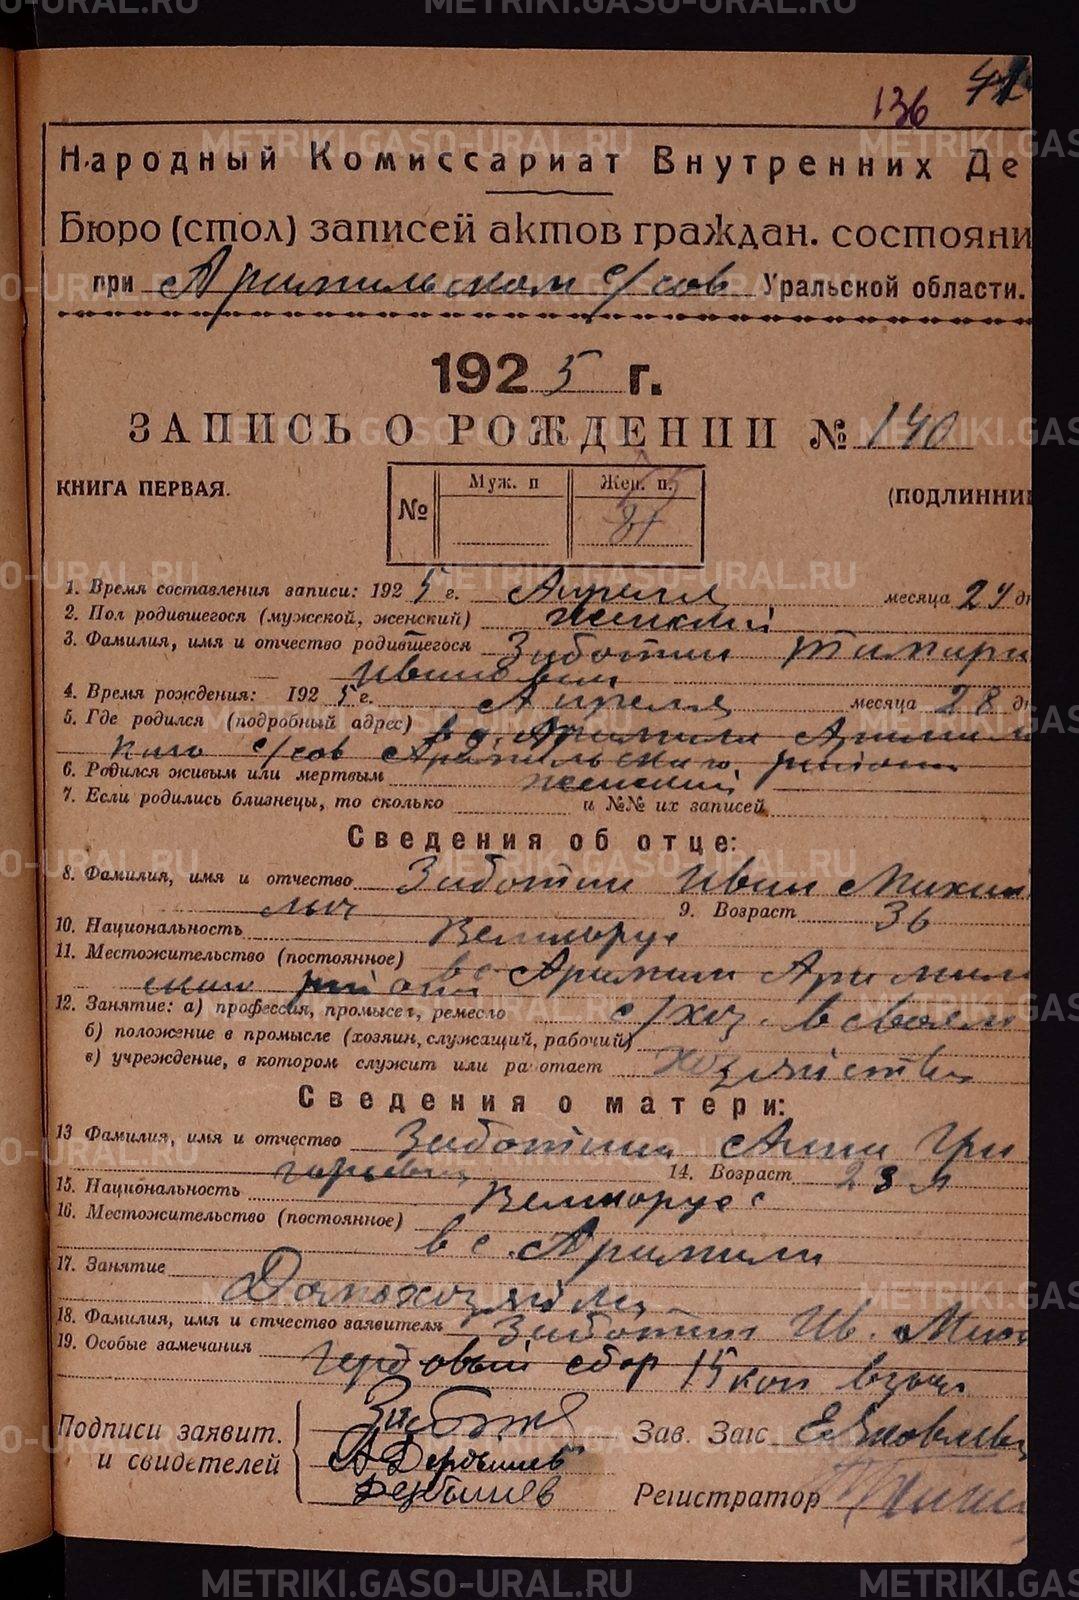 METRIKI.GASO-URAL.RU
136 41
Народный Комиссариат Внутренних Де
Бюро (стол) записей актов граждан. состояни
при Арамильском с/сов Уральской области.
1925 г.
ЗАПИСЬ О РОЖДЕНИИ № 140
КНИГА ПЕРВАЯ. (ПОДЛИННИ
№ Муж. п Жен. п.
1. Время составления записи: 1925 г. Апреля месяца 24 д
2. Пол родившегося (мужской, женский) женский
3. Фамилия, имя и отчество родившегося Заботин
Ивановна
4. Время рождения: 1925 г. Апреля месяца 28 д
5. Где родился (подробный адрес) в с. Арамили Арамиль
кого с/сов Арамильского района
6. Родился живым или мертвым женский
7. Если родились близнецы, то сколько и №№ их записей
Сведения об отце:
8. Фамилия, имя и отчество Заботин Иван Михаи
лыч 9. Возраст 36
10. Национальность Великорус
11. Местожительство (постоянное) в с. Арамили Арамиль
ского района
12. Занятие: а) профессия, промысел, ремесло с/хоз. в своем
б) положение в промысле (хозяин, служащий, рабочий)
в) учреждение, в котором служит или работает хозяйстве
Сведения о матери:
13 Фамилия, имя и отчество Заботина Анна Гри
горьевна 14. Возраст 23 л
15. Национальность Великорус
16. Местожительство (постоянное)
в с. Арамили
17. Занятие
Домохозяйка
18. Фамилия, имя и отчество заявителя Заботин Ив. Мих
19. Особые замечания гербовый сбор 15 коп взыс
Подписи заявит. Зав. Загс Е. Яковлев
и свидетелей А Дербышев
Дербышев Регистратор